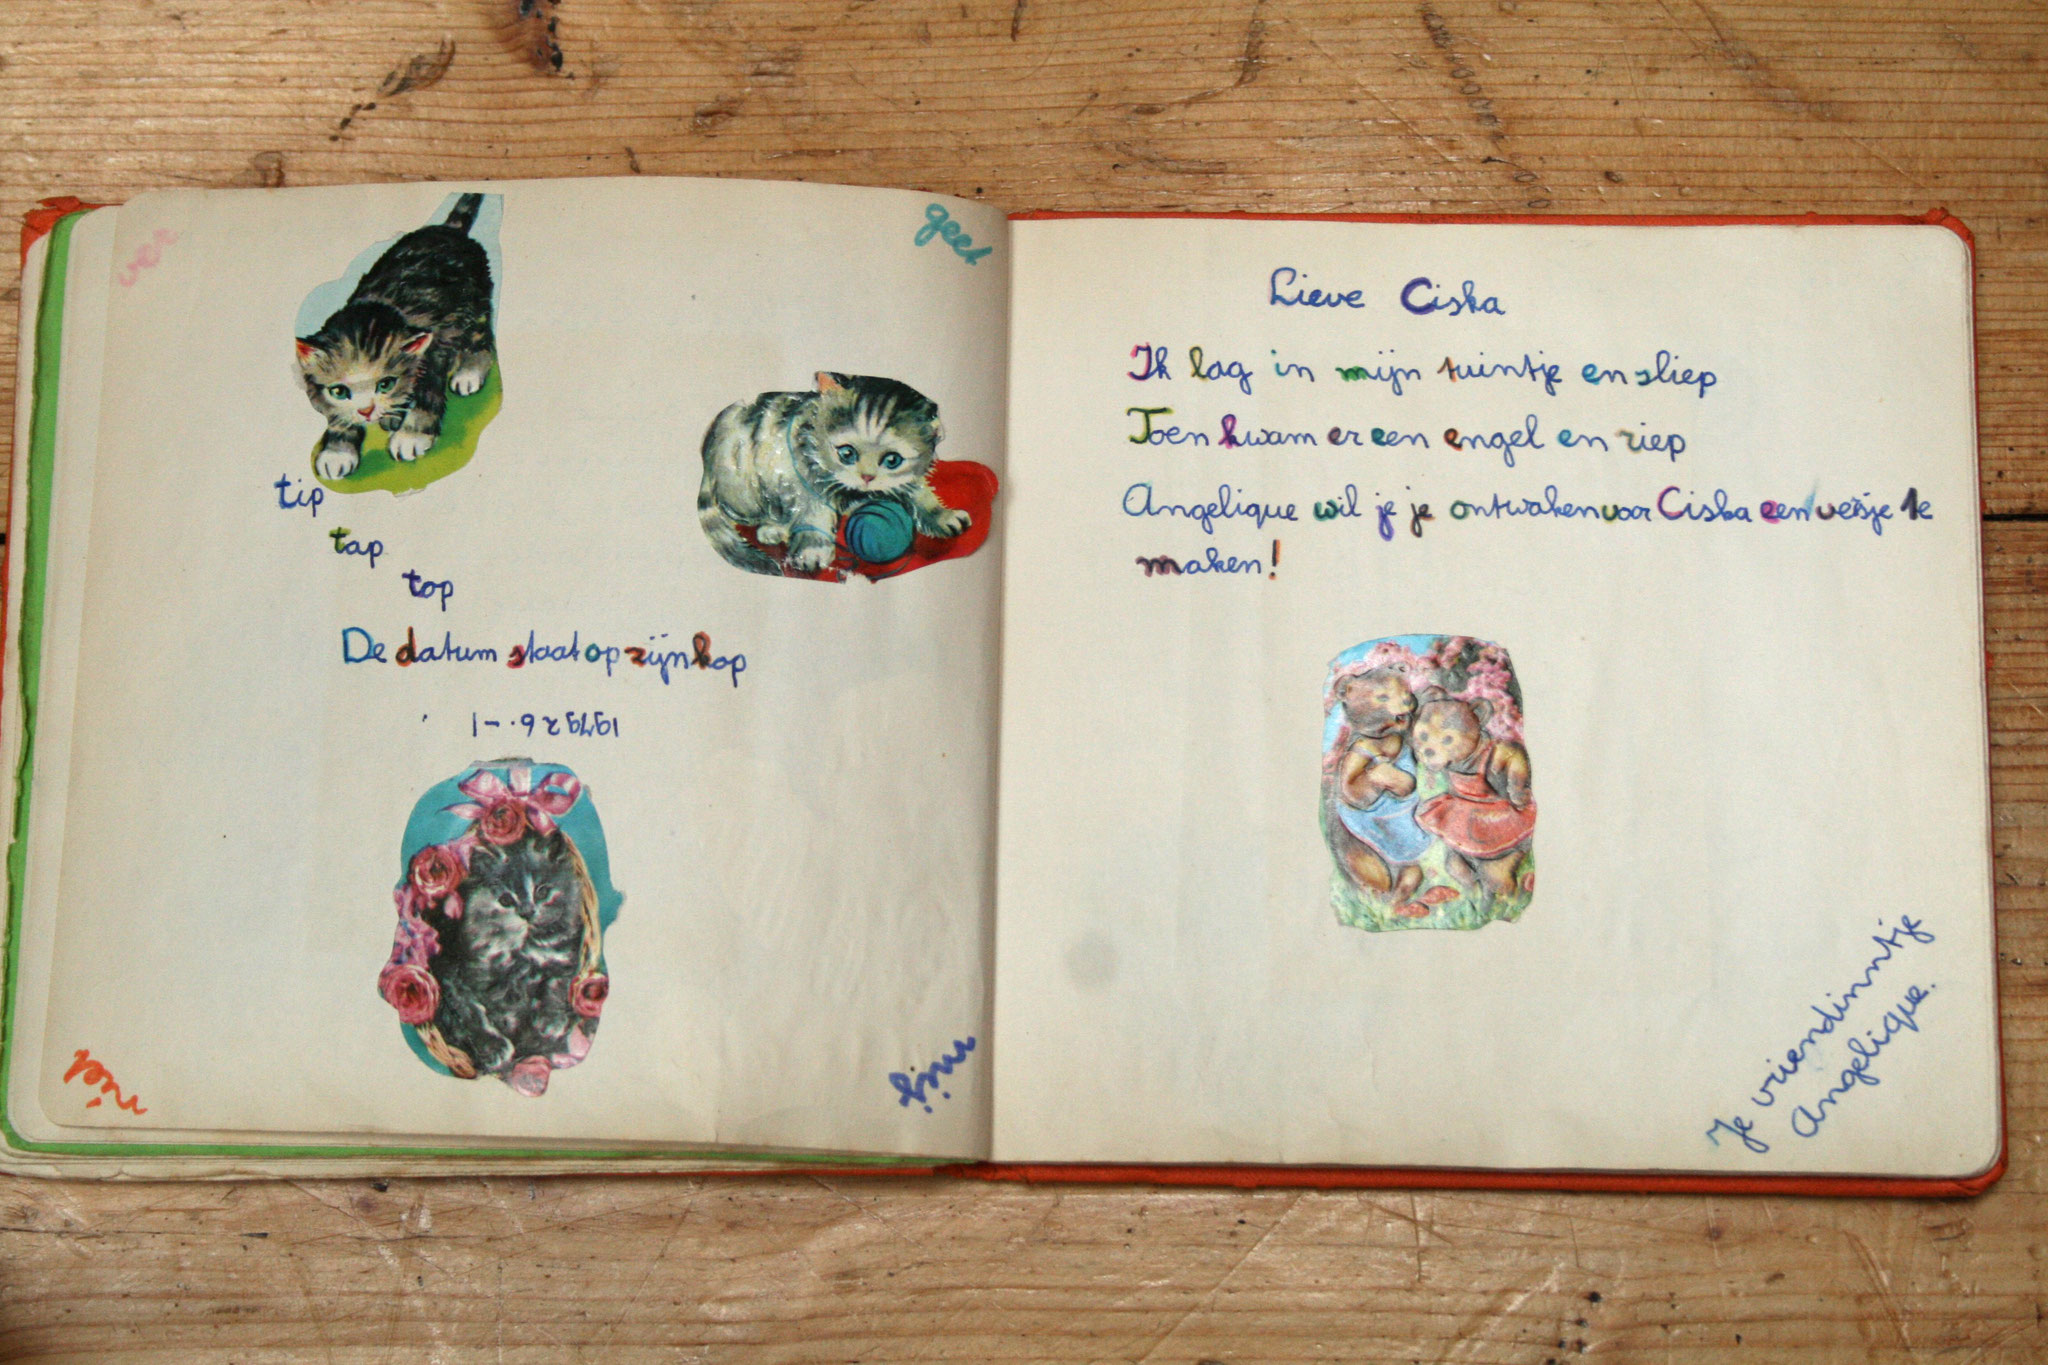 ver
geet
tip
tap
top
De datum staat op zijn kop
niet
mij
Lieve Ciska
Ik lag in mijn tuintje en sliep
Toen kwam er een engel en riep
Angelique wil je je ontwaken voor Ciska een versje te
maken!
Je vriendinntje
Angelique.